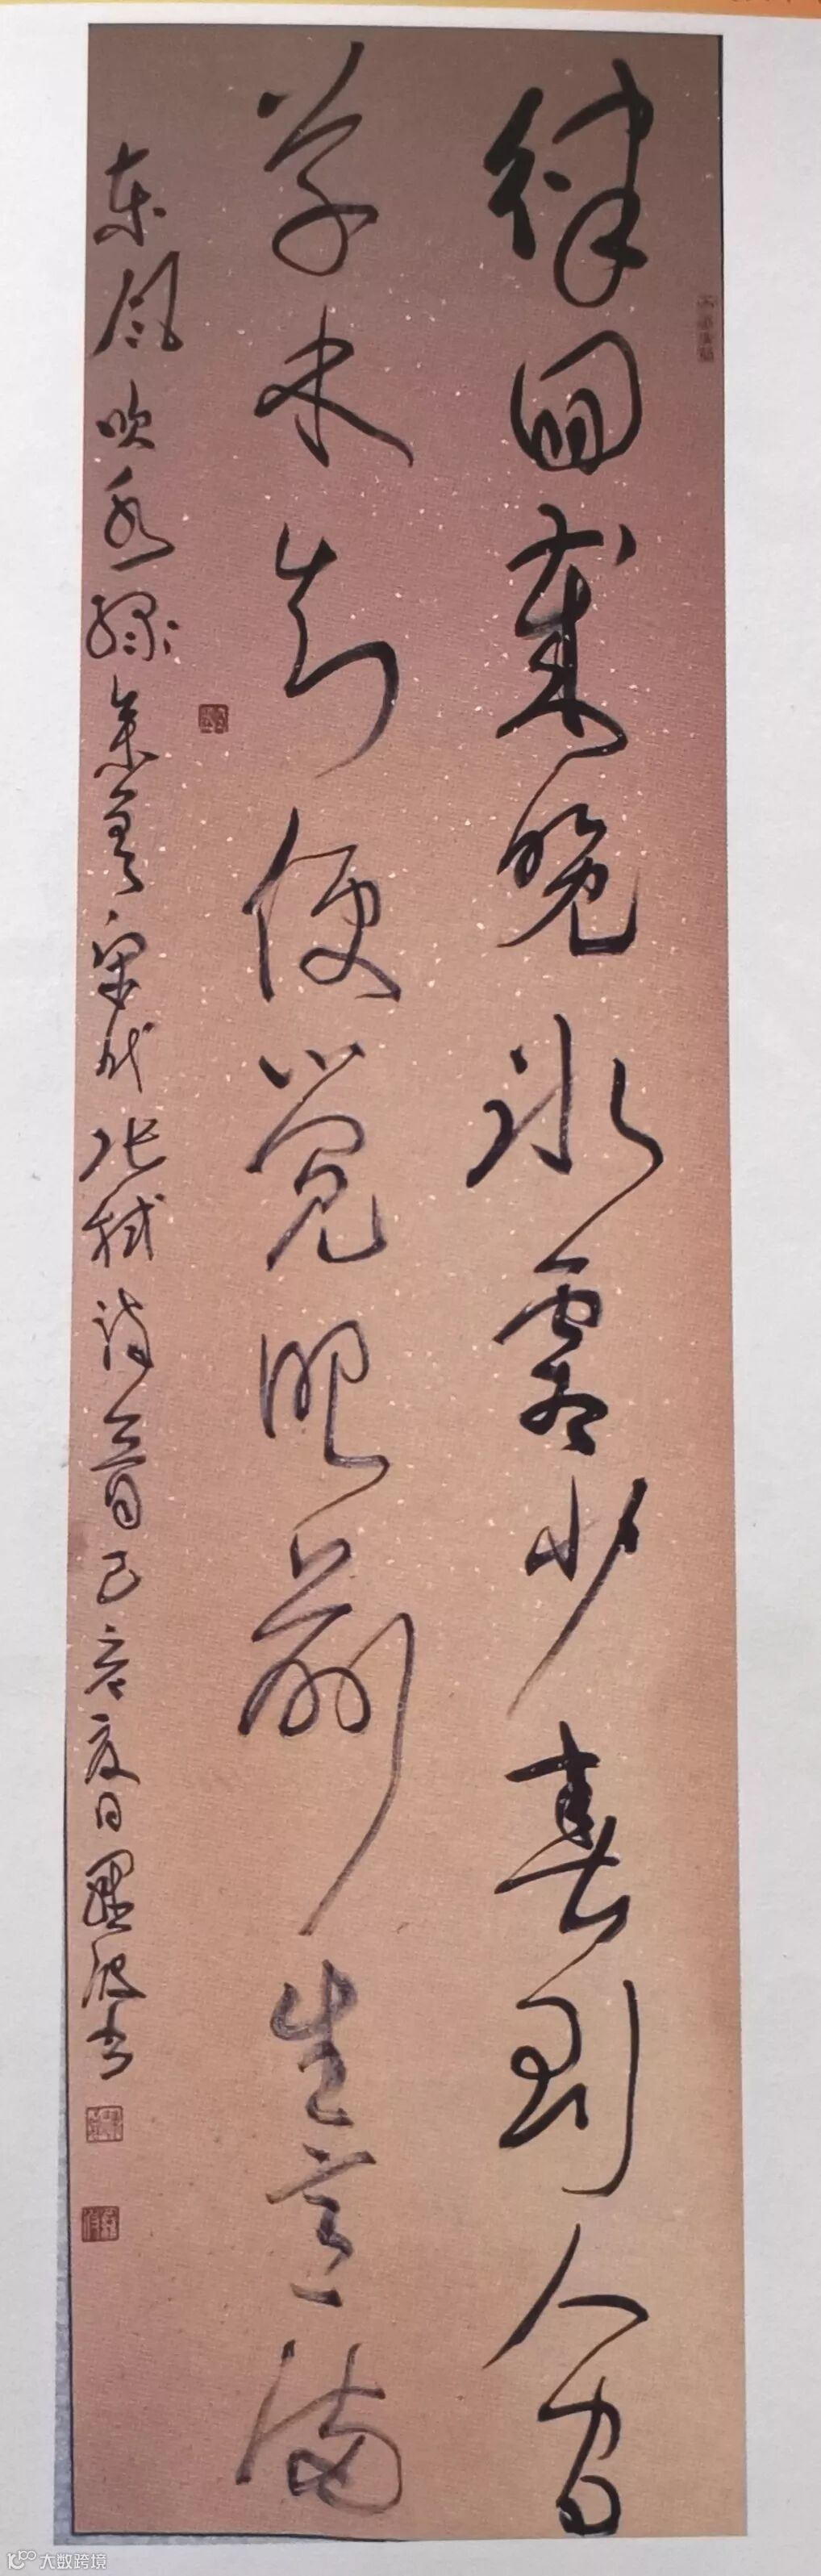 律回岁晚冰霜少春到人间
草木知便觉眼前生意满
东风吹水绿参差宋代张栻诗一首己亥夏日罗波书
大数跨境